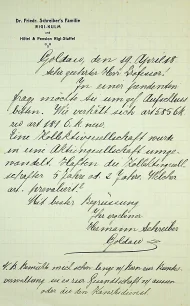 Dr. Friedr. Schreiber's Familie
RIGI-KULM
und
Hôtel & Pension Rigi-Staffel
Goldau, den 19. April 18.
Sehr geehrter Herr Professor!
In einer
frage möchte Sie um gefl. Aufschluss
bitten. Wie verhält sich art 585 Ch
zu art 181 O.R. neu.
Eine Kollektivgesellschaft wurde
in eine Aktiengesellschaft umge-
wandelt. Haften die Kollektivgesell-
schafter 5 Jahre od. 2 Jahre. Welcher
art. prevaliert?
Mit bester Begrüssung
Ihr ergebener
Hermann Schreiber
Goldau
N.B. noch schon lange